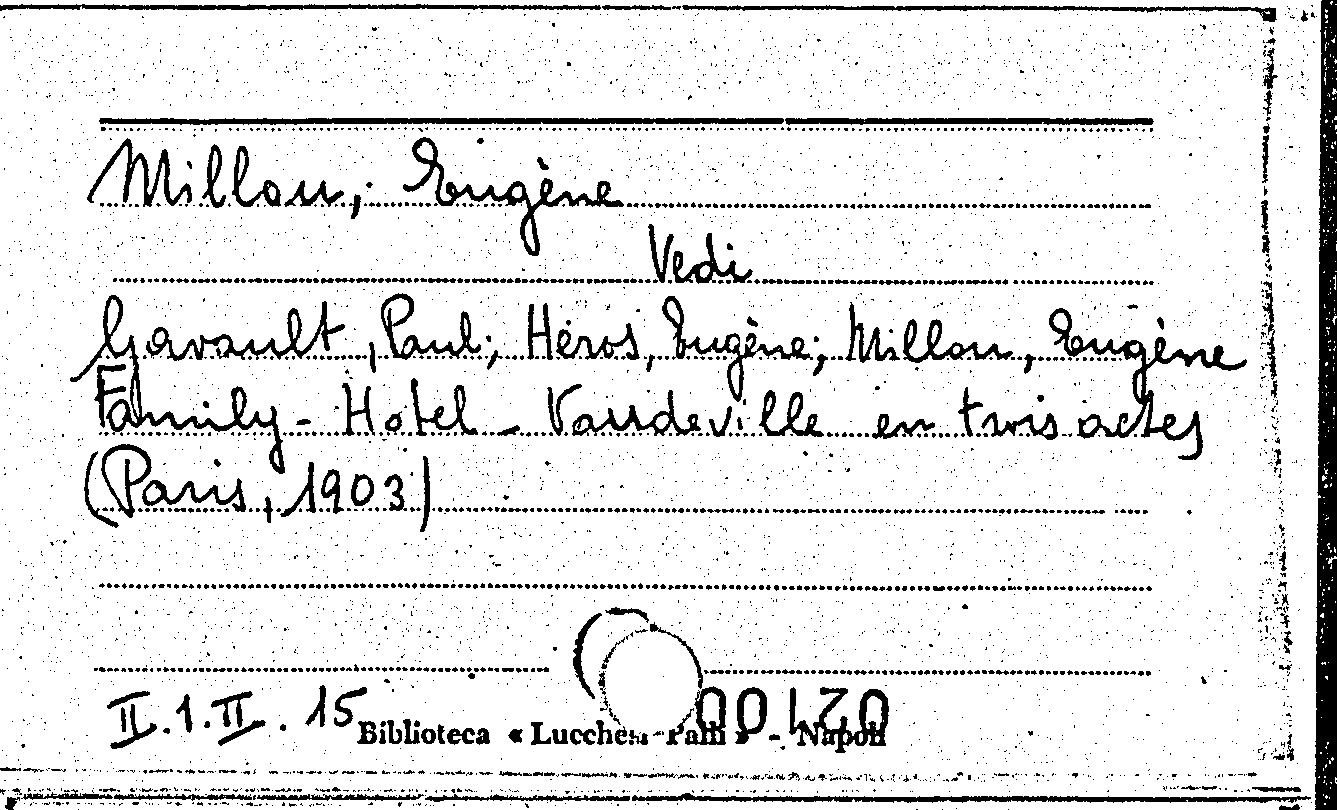 Millou, Eugène
Vedi
Gavault, Paul; Héros, Eugène; Millou, Eugène
Family-Hotel - Vaudeville en trois actes
(Paris, 1903)
II.1.II.15
Biblioteca « Lucchesi-Palli » - Napoli